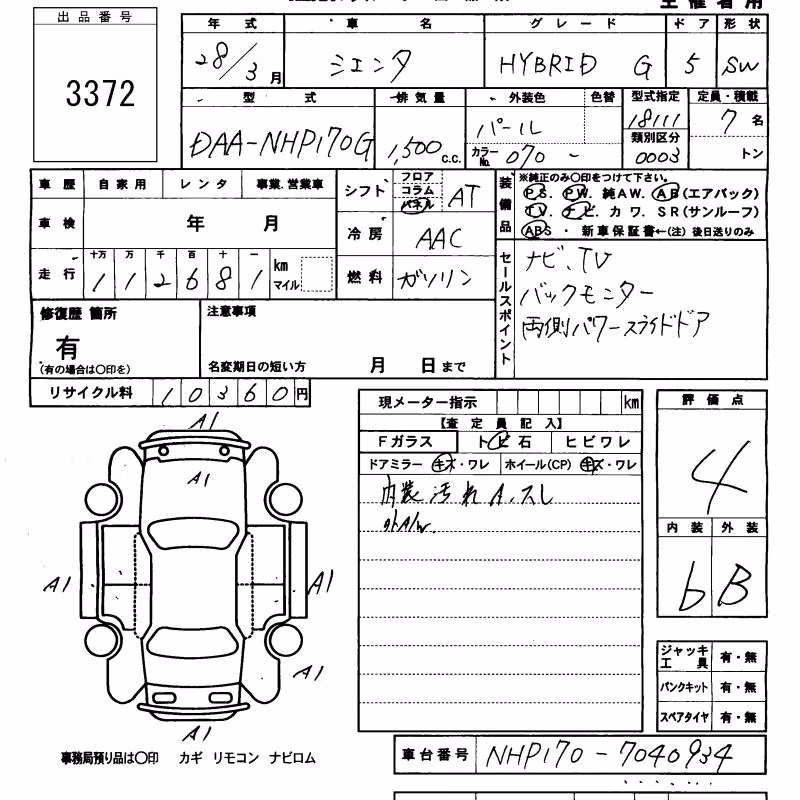 出品番号
3372
年式 車名 グレード ドア 形状
28/3月 シエンタ HYBRID G 5 SW
型式 排気量 外装色 色替 型式指定 定員・積載
DAA-NHP170G 1,500c.c. パール 18111 7名
カラーNo. 070 - 類別区分 0003 トン
車歴 自家用 レンタ 事業.営業車
シフト フロア コラム パネル AT
装備品 ※純正のみ〇印をつけて下さい。
PS. PW. 純AW. AB(エアバック)
TV. ナビ カワ. SR(サンルーフ)
ABS ・ 新車保証書←(注) 後日送りのみ
車検 年 月
冷房 AAC
走行 十万 万 千 百 十 一
112681 km マイル
燃料 ガソリン
セールスポイント
ナビ、TV
バックモニター
両側パワースライドドア
修復歴 箇所 注意事項
有
(有の場合は〇印を) 名変期日の短い方 月 日まで
リサイクル料 10360円
現メーター指示 km
評価点
4
【査定員記入】
Fガラス トビ石 ヒビワレ
ドアミラー キズ・ワレ ホイール(CP) キズ・ワレ
内装汚れ A.スレ
内装 外装
6 B
A1
A1
A1 A1
A1
A1
ジャッキ工具 有・無
パンクキット 有・無
スペアタイヤ 有・無
事務局預り品は〇印 カギ リモコン ナビロム
車台番号 NHP170-7040934